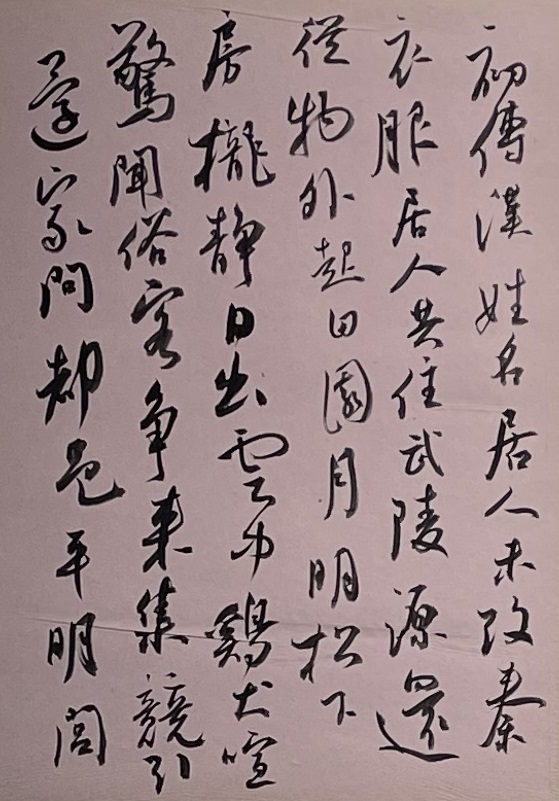 初傳漢姓名居人未改秦
衣服居人共住武陵源還
從物外起田園月明松下
房櫳静日出雲中鷄犬喧
驚聞俗客争來集競引
還家問都邑平明閭